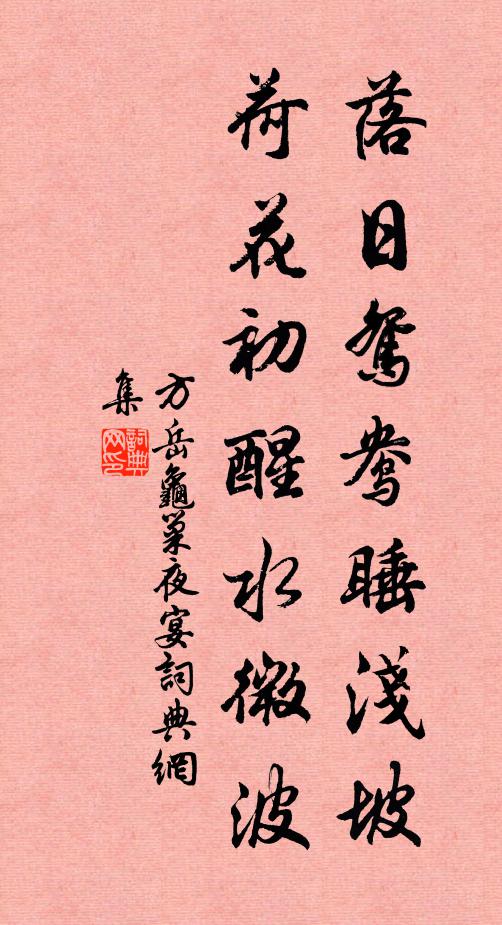 落日鴛鴦睡淺坡
荷花初醒水微波
方岳龜巢夜宴詞典網
集
詞典网印